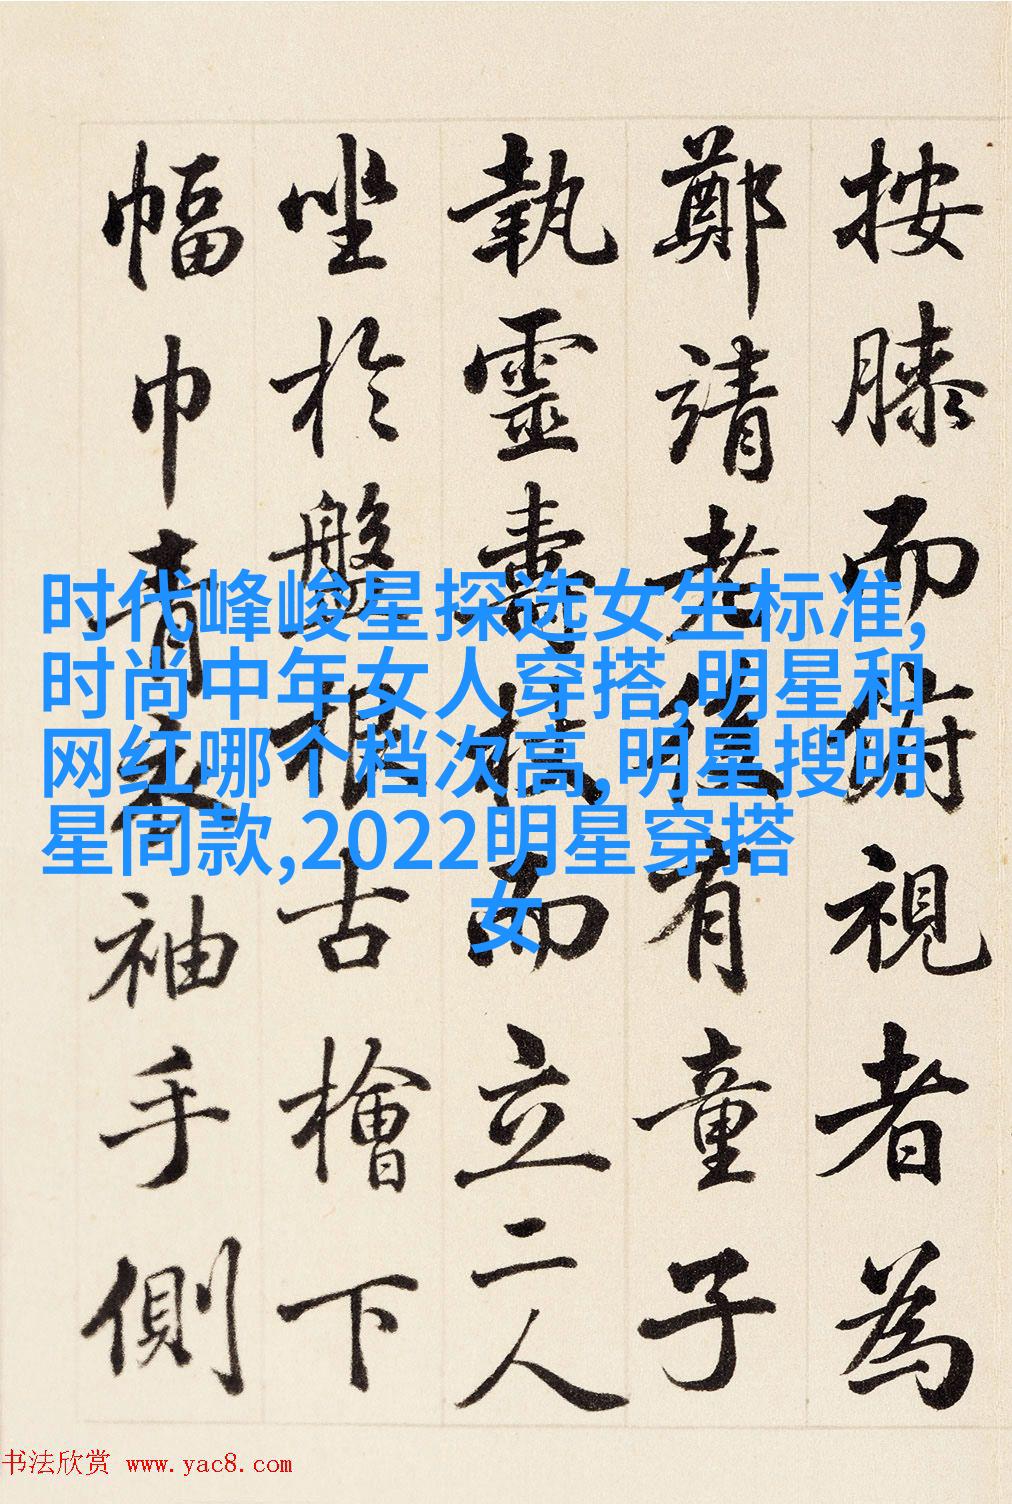 按膝而俯視者為
鄭靖老後有童子
執靈壽杖而立二人
坐於盤根古檜下
幅巾青衣袖手側
时代峰峻星探选女生标准,
时尚中年女人穿搭,明星和
网红哪个档次高,明星搜明
星同款,2022明星穿搭
女
书法欣赏 www.yac8.com